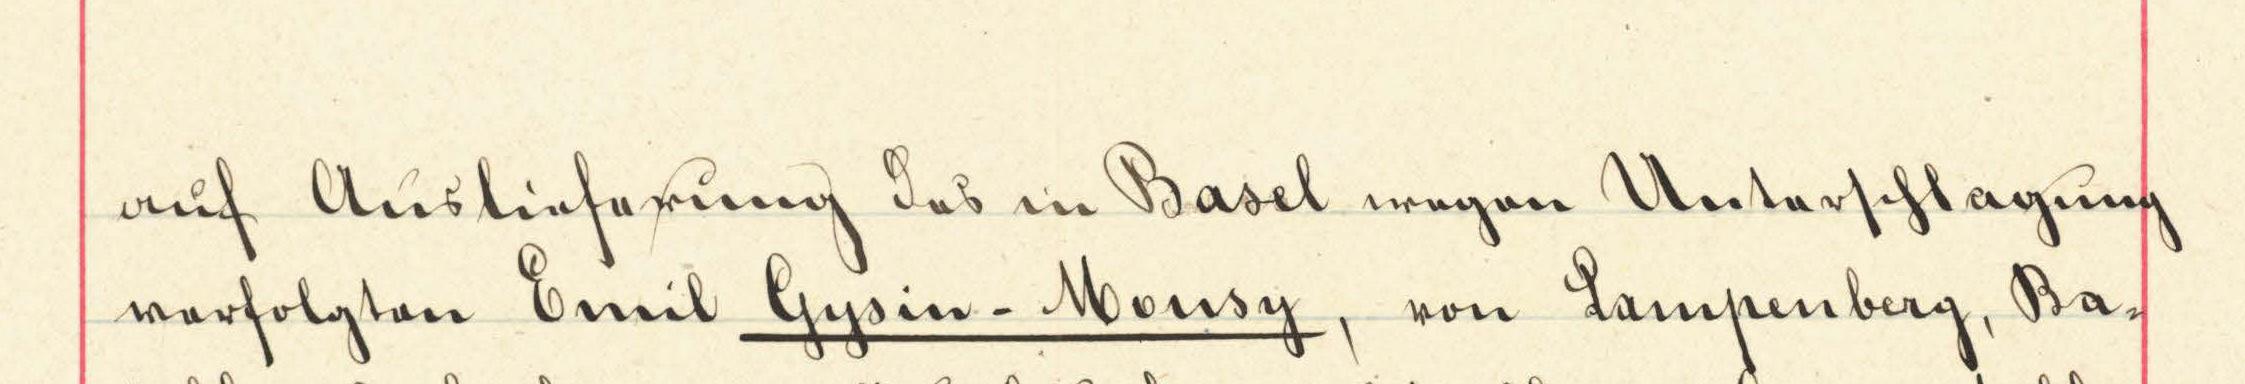 auf Auslieferung des in Basel wegen Unterschlagung
verfolgten Emil Gysin-Mousy, von Lampenberg, Ba-